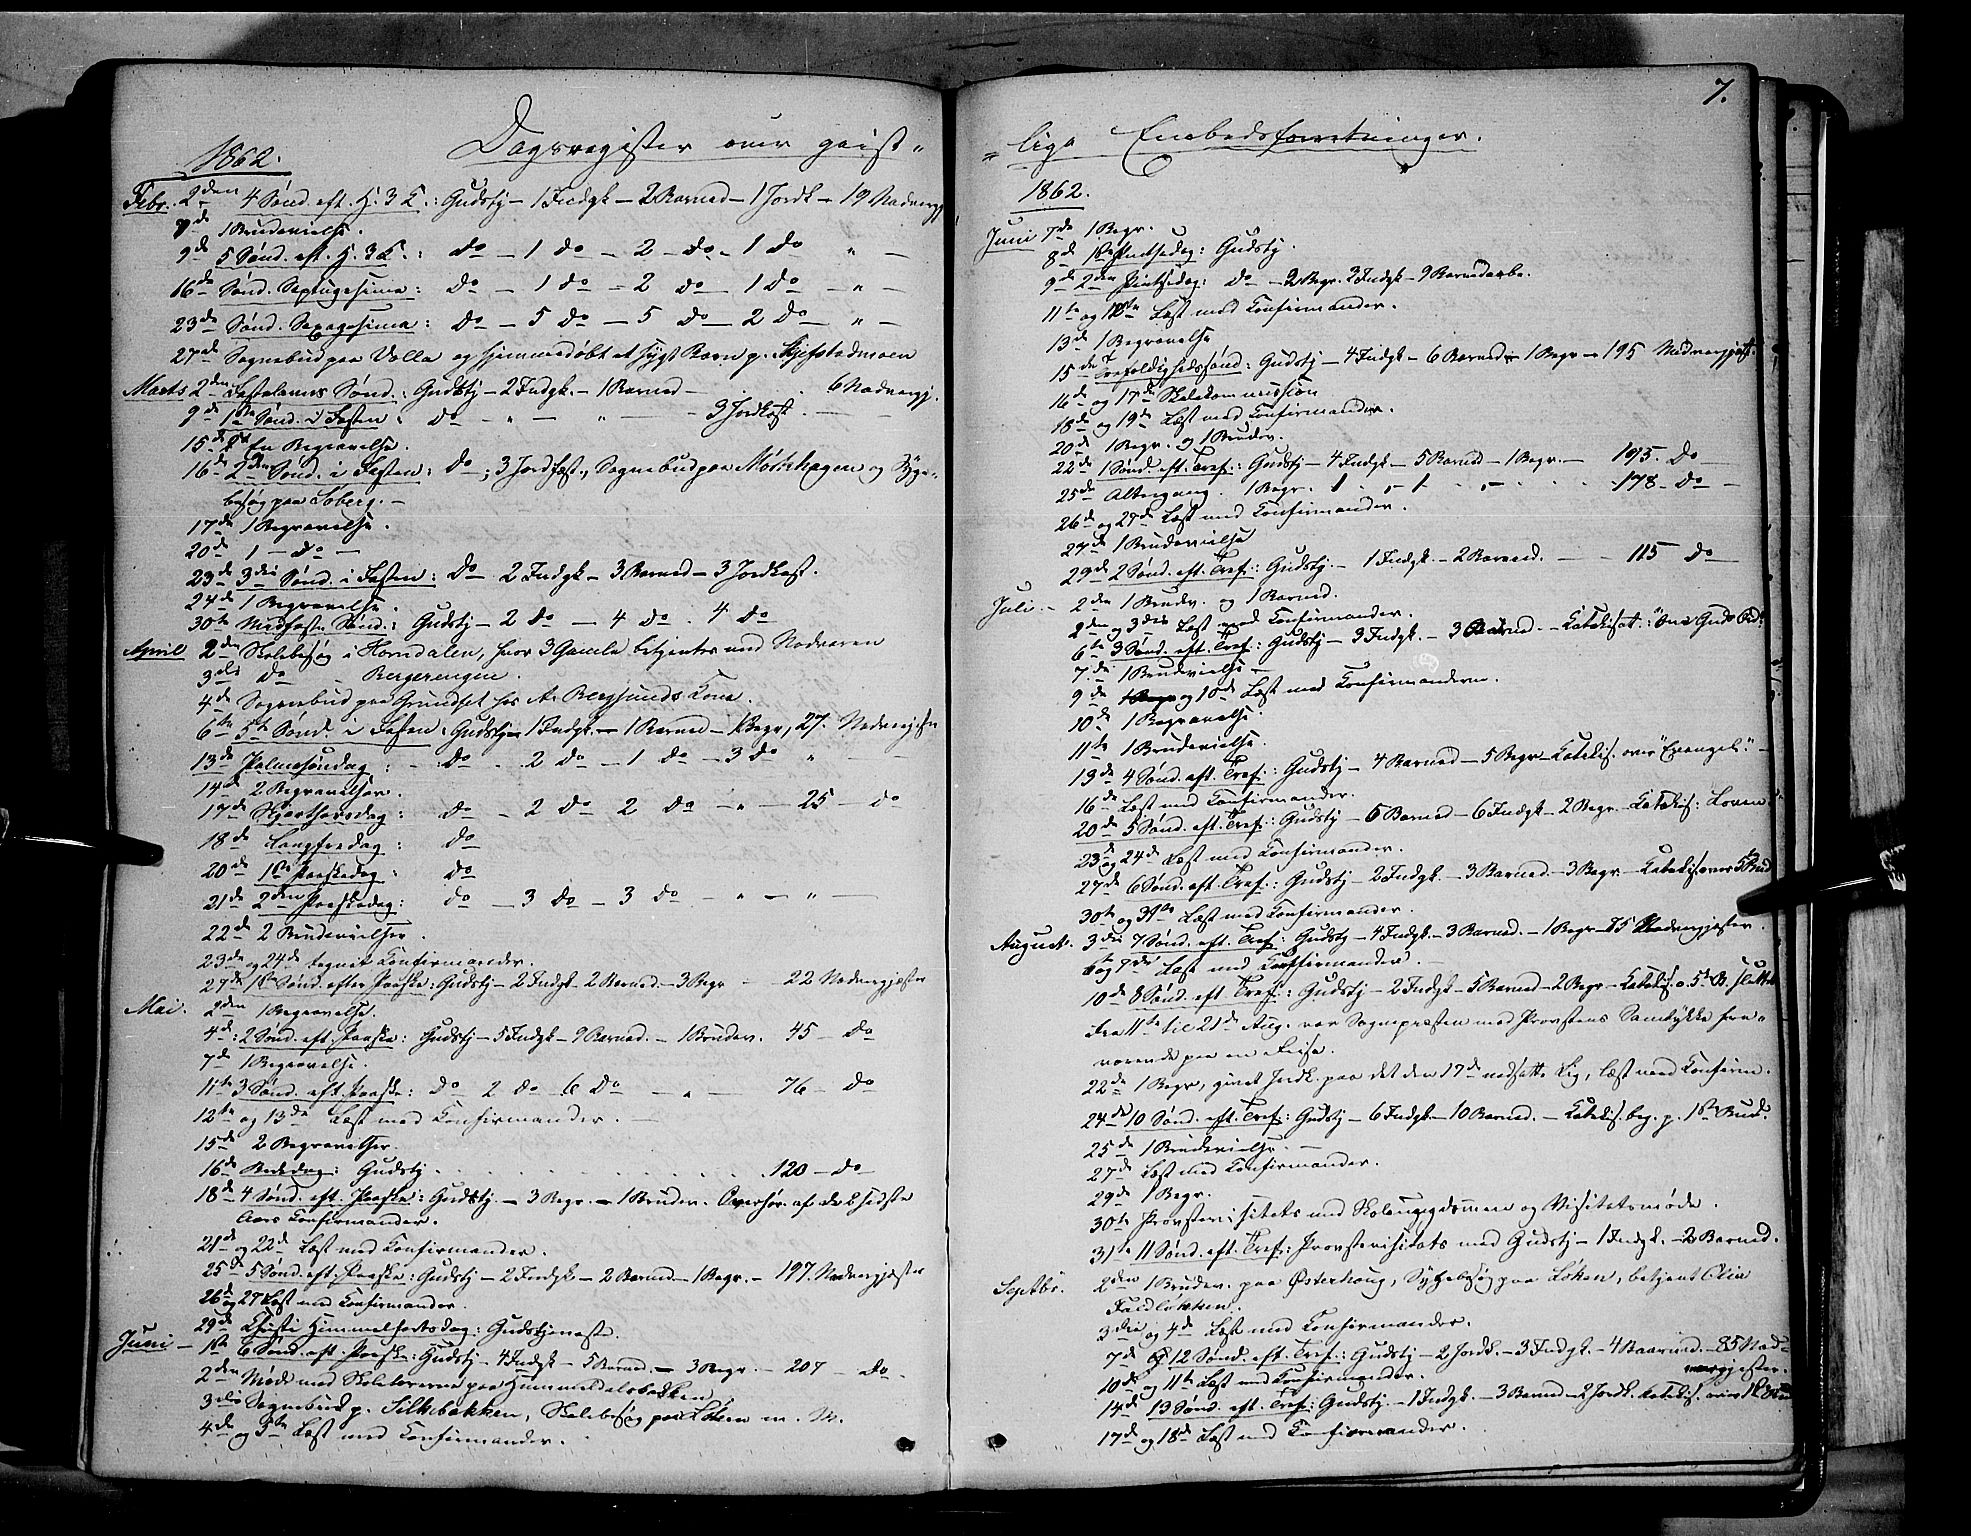 7.
Dagsregister over geist-
1862.
Febr. 2den 4 Sønd. eft. H. 3 K.: Gudstj – 1 Indgk – 2 Barned – 1 Jordk – 19 Nadvergj
7de 1 Brudevielse.
9de 5 Sønd. eft. H. 3 K.: do – 1 do – 2 – do – 1 do " –
16de Sønd. Septuagesima: do – 1 do – 2 do – 1 do – " –
23de Sønd. Sexagesima: do – 5 do – 5 do – 2 do – " –
27de Sognebud paa Volla og hjemmedøbt et sygt Barn p. Skjefstadmoen
Marts 2den Fastelavns Sønd.: Gudstj – 2 Indgk. – 1 Barned – 6 Nadvergj.
9de 1ste Sønd. i Fasten: do " – " – 3 Jordkast. –
15de En Begravelse.
16de 2den Sønd. i Fasten: do –; 3 Jordfæst., Sognebud paa Mølnhagen og Syge-
besøg paa Soberg. –
17de 1 Begravelse.
20de 1 – do –
23de 3die Sønd. i Fasten: do – 2 Indgk – 3 Barned – 3 Jordkast.
24de 1 Begravelse.
30te Midfaste Sønd.: Gudstj – 2 do – 4 do . 4 do
April 2den Skolebesøg i Horndalen, hvor 3 Gamle betjentes med Nadveren
3die do – Bergerengen.
4de Sognebud paa Grundset hos A. Bergsunds Kone.
6te 5te Sønd. i Fasten: Gudstj – 1 Indgk. – 1 Barned – 1 Begr, 27. Nadvergjester
13de Palmesøndag: do . 2 do – 1 do – 3 do " –
14de 2 Begravelser.
17de Skjærthorsdag: do – 2 do 2 do – " – 25 – do
18de Langfredag: do
20de 1ste Paaskedag: do
21de 2den Paaskedag: do – 3 do – 3 do – " – " –
22de 2 Brudevielser.
23de og 24de tegnet Confirmander.
27de 1ste Sønd. efter Paaske: Gudstj – 2 Indgk – 2 Barned – 3 Begr – 22 Nadvergjester
Mai. 2den 1 Begravelse.
4de: 2 Sønd. eft. Paaske: Gudstj – 5 Indgk – 9 Barned. – 1 Brudev. 45 – do
7de 1 Begravelse.
11te 3 Sønd. eft. Paaske: do 2 do 6 do – " – 76 – do
12te og 13de Læst med Confirmander. –
15de 2 Begravelser.
16de Bededag: Gudstj. 120 – do
18de 4 Sønd. eft. Paaske: Gudstj. – 3 Begr. – 1 Brudev. Overhør. af de 2 sidste
Aars Confirmander.
21de og 22de Læst med Confirmander.
25de 5 Sønd. eft. Paaske: Gudstj – 2 Indgk – 2 Barned – 1 Begr. – 197. Nadvergjester
26de og 27 Læst med Confirmander.
29de Christi Himmelfartsdag: Gudstjeneste.
Juni – 1ste 6 Sønd. eft. Paaske: Gudstj – 4 Indgk – 5 Barned. – 3 Begr. – 207 – do.
2den Møde med Skolelærerne paa Hummeldalsbakken
3die Sognebud p. Silkebakken, Skolebesøg paa Løken m. M.
4de og 5te Læst med Confirmander.
-lige Embedsforretninger.
1862.
Juni 7de 1 Begr.
8de 1ste Pintsedag: Gudstj.
9de 2den Pintsedag: do – 2 Begr. 3 Indgk – 9 Barnedaabe.
11te og 12te Læst med Confirmander.
13de 1 Begravelse
15de Trefoldighedssønd: Gudstj – 4 Indgk – 6 Barned – 1 Begr – 195 Nadvergjest.
16de og 17de Skolekommission
18de og 19de Læst med Confirmander.
20de 1 Begr. og 1 Brudev.
22de 1 Sønd. eft. Tref.: Gudstj – 4 Indgk – 5 Barned – 1 Begr. – 195. do –
25de Altergang. 1 Begr. 178 – do –
26de og 27de Læst med Confirmander.
27de 1 Brudevielse
29de 2 Sønd. eft. Tref.: Gudstj. – 1 Indgk. – 2 Barned. – 115 do –
Juli. – 2den 1 Brudv. og 1 Barned.
2den og 3die Læst med Confirmander.
6te 3 Sønd. eft. Tref: Gudstj – 3 Indgk. – 3 Barned. – Katekisat.: "Om Guds Ord
7de 1 Brudvielse –
9de og 10de Læst med Confirmanderne.
10de 1 Begravelse.
11te 1 Brudevielse.
13de 4 Sønd. eft. Tref.: Gudstj – 4 Barned – 5 Begr – Katekis. over "Evangel." –
16de Læst med Confirmander.
20de 5 Sønd. eft. Tref.: Gudstj – 6 Barned – 6 Indgk – 2 Begr – Katekis: Loven
23de og 24de Læst med Confirmander.
27de 6 Sønd. eft. Tref.: Gudstj – 2 Indgk. – 3 Barned. – 3 Begr – Katekis. over 5te Bud
30te og 31te Læst med Confirmander.
August. 3die 7 Sønd. eft. Tref: Gudstj – 4 Indgk. – 3 Barned. – 1 Begr – 75 Nadvergjester.
6te og 7de Læst med Confirmander. –
10de 8 Sønd. eft. Tref.: Gudstj – 2 Indgk – 5 Barned – 2 Begr – Katekis. o. 5te B. sluttet
Fra 11te til 21de Aug. var Sognepræsten med Provstens Samtykke fra-
værende paa en Reise.
22de 1 Begr, givet Jordk. paa det den 17de nedsatte Lig, læst med Confirm.
24de 10 Sønd. eft. Tref.: Gudstj – 6 Indgk – 10 Barned. – Katekis. beg. p. 1ste Bud.
25de 1 Brudevielse. –
27de Læst med Confirmander.
29de 1 Begr.
30te Provstevisitats med Skoleungdommen og Visitatsmøde.
31te 11 Sønd. eft. Tref: Provstevisitats med Gudstj – 1 Indgk. – 2 Barned.
Septbr. 2den 1 Brudev. paa Østerhaug, Sygebesøg paa Løken, betjent Olia
Faldløkken.
3die og 4de Læst med Confirmander.
7de 12 Sønd. eft. Tref.: Gudstj – 2 Jordk. – 3 Indgk. – 4 Baarned. – 85 Nad-
vergjester.
10de og 11te Læst med Confirmander.
14de 13 Sønd. eft. Tref: Gudstj. – 1 Indgk. – 3 Barned – 2 Jordk. Katekis. over 1ste Bud
17de og 18de Læst med Confirmander.